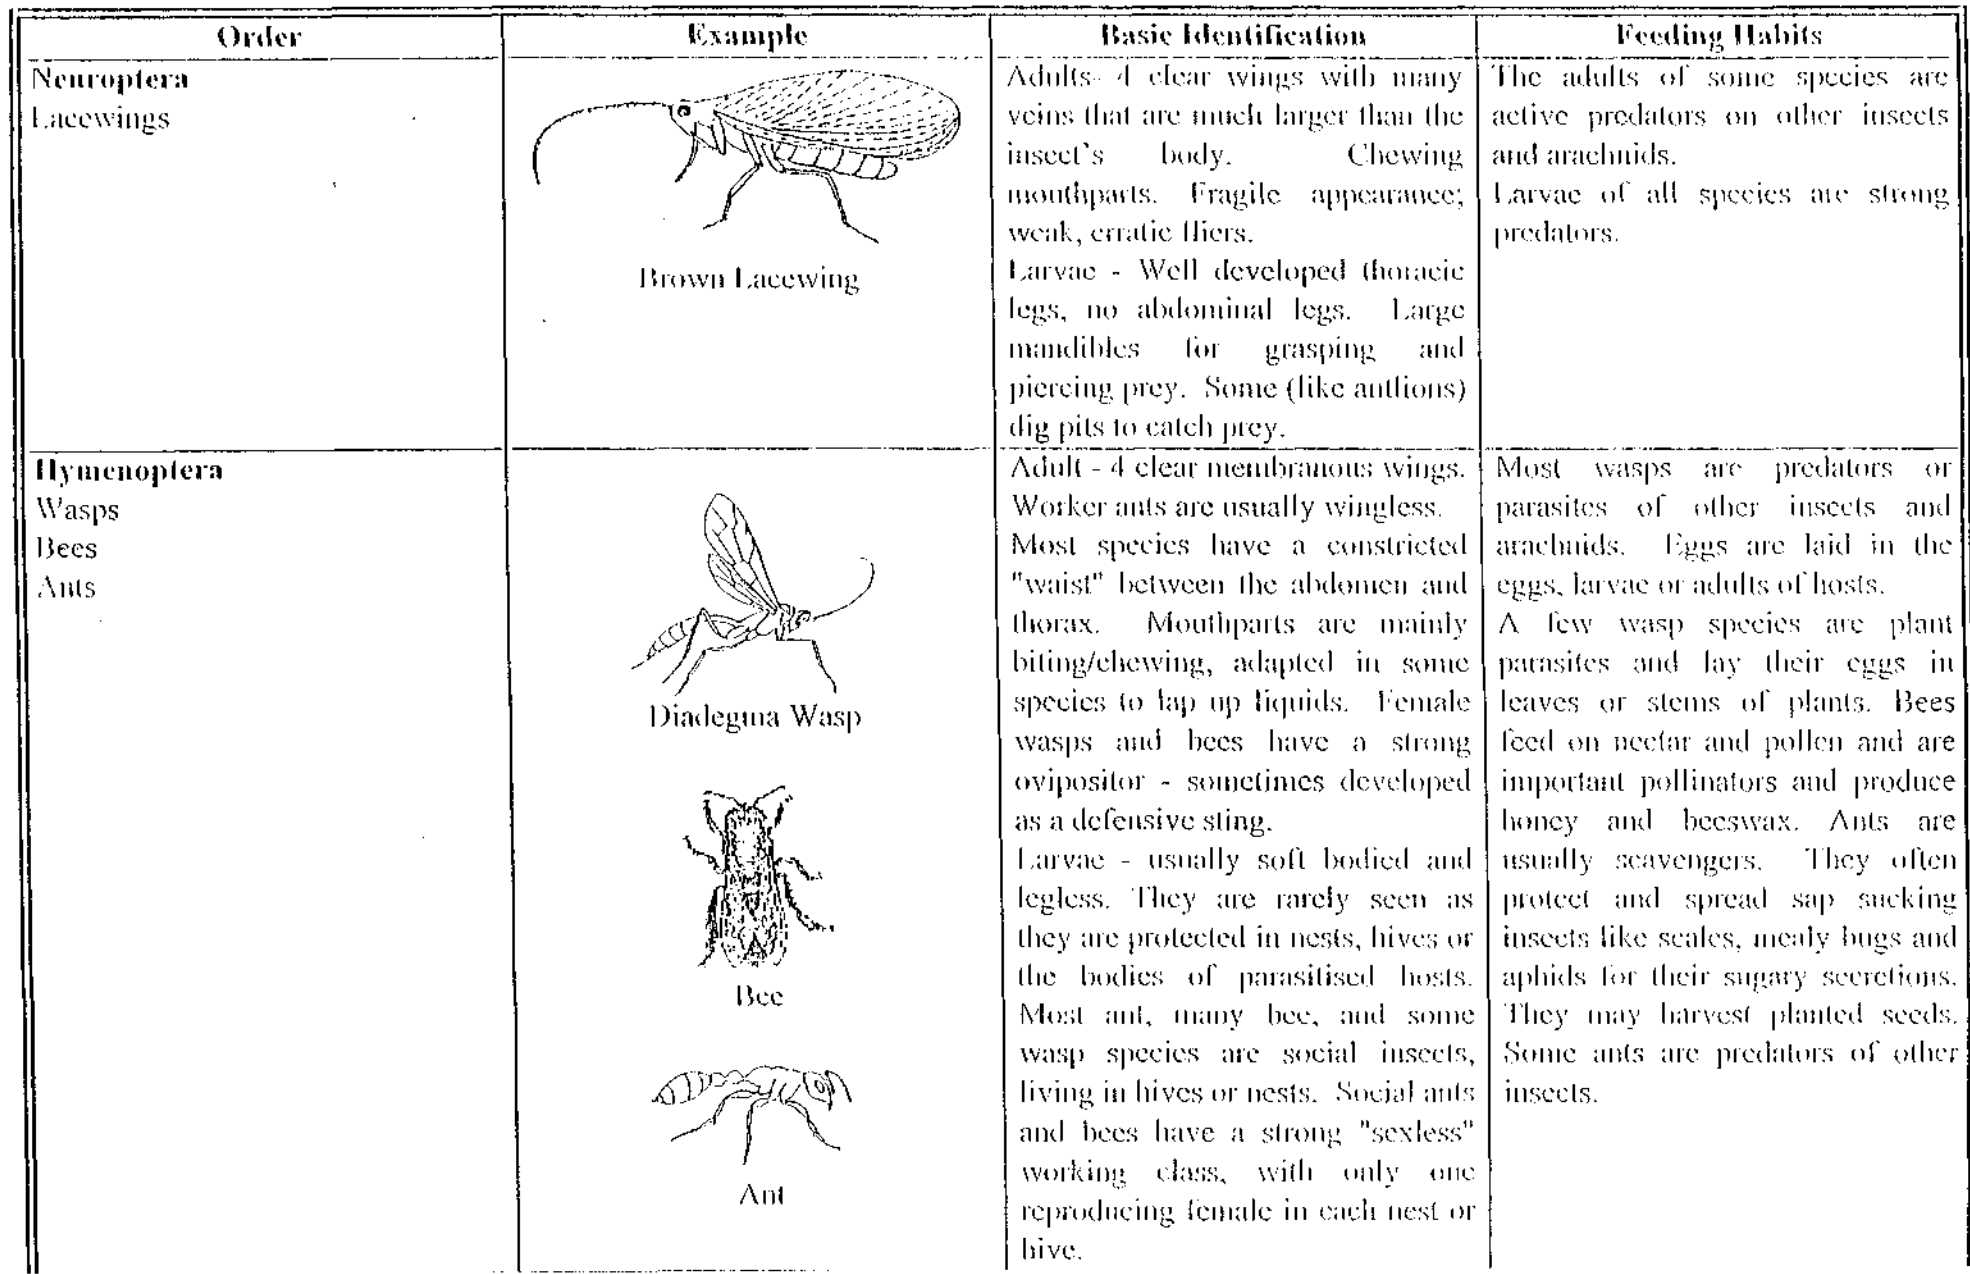 Order
Example
Basic Identification
Feeding Habits
Neuroptera
Lacewings
Brown Lacewing
Adults- 4 clear wings with many
veins that are much larger than the
insect's body. Chewing
mouthparts. Fragile appearance;
weak, erratic fliers.
Larvae - Well developed thoracic
legs, no abdominal legs. Large
mandibles for grasping and
piercing prey. Some (like antlions)
dig pits to catch prey.
The adults of some species are
active predators on other insects
and arachnids.
Larvae of all species are strong
predators.
Hymenoptera
Wasps
Bees
Ants
Diadegma Wasp
Bee
Ant
Adult - 4 clear membranous wings.
Worker ants are usually wingless.
Most species have a constricted
"waist" between the abdomen and
thorax. Mouthparts are mainly
biting/chewing, adapted in some
species to lap up liquids. Female
wasps and bees have a strong
ovipositor - sometimes developed
as a defensive sting.
Larvae - usually soft bodied and
legless. They are rarely seen as
they are protected in nests, hives or
the bodies of parasitised hosts.
Most ant, many bee, and some
wasp species are social insects,
living in hives or nests. Social ants
and bees have a strong "sexless"
working class, with only one
reproducing female in each nest or
hive.
Most wasps are predators or
parasites of other insects and
arachnids. Eggs are laid in the
eggs, larvae or adults of hosts.
A few wasp species are plant
parasites and lay their eggs in
leaves or stems of plants. Bees
feed on nectar and pollen and are
important pollinators and produce
honey and beeswax. Ants are
usually scavengers. They often
protect and spread sap sucking
insects like scales, mealy bugs and
aphids for their sugary secretions.
They may harvest planted seeds.
Some ants are predators of other
insects.